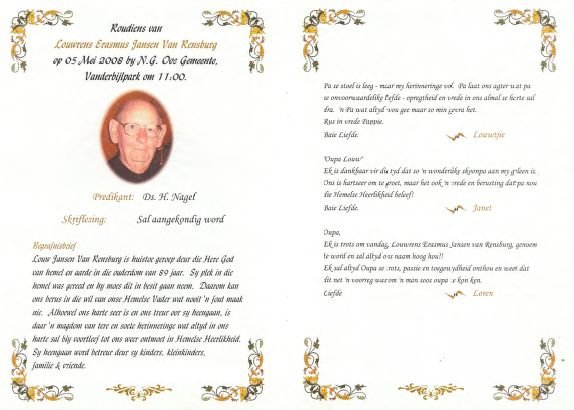 Roudiens van
Louwrens Erasmus Jansen Van Rensburg
op 05 Mei 2008 by N.G. Oos Gemeente,
Vanderbijlpark om 11:00.
Predikant: Ds. H. Nagel
Skriflesing: Sal aangekondig word
Begrafnisbrief
Louw Jansen Van Rensburg is huistoe geroep deur die Here God
van hemel en aarde in die ouderdom van 89 jaar. Sy plek in die
hemel was gereed en hy moes dit in besit gaan neem. Daarom kan
ons berus in die wil van onse Hemelse Vader wat nooit 'n fout maak
nie. Alhoewel ons harte seer is en ons treur oor sy heengaan, is
daar 'n magdom van tere en soete herinneringe wat altyd in ons
harte sal bly voortleef tot ons weer ontmoet in Hemelse Heerlikheid.
Sy heengaan word betreur deur sy kinders, kleinkinders,
familie & vriende.
Pa se stoel is leeg - maar my herinneringe vol. Pa laat ons agter wat pa
se onvoorwaardelike liefde - opregtheid en vrede in ons almal se harte sal
dra. 'n Pa wat altyd vou gee maar so min gevra het.
Rus in vrede Pappie.
Baie Liefde. Louwtjie
"Oupa Louw"
Ek is dankbaar vir die tyd dat so 'n wonderlike skoonpa aan my gegee is.
Ons is hartseer om te groet, maar het ook 'n vrede en berusting dat pa nou
die Hemelse Heerlikheid beleef!
Baie Liefde. Janet
Oupa,
Ek is trots om vandag, Louwrens Erasmus Jansen van Rensburg, genoem
te word en sal altyd ons naam hoog hou!!
Ek sal altyd Oupa se trots, passie en toegewydheid onthou en weet dat
dit net 'n voorreg was om 'n man soos oupa te kon ken.
Liefde Loren